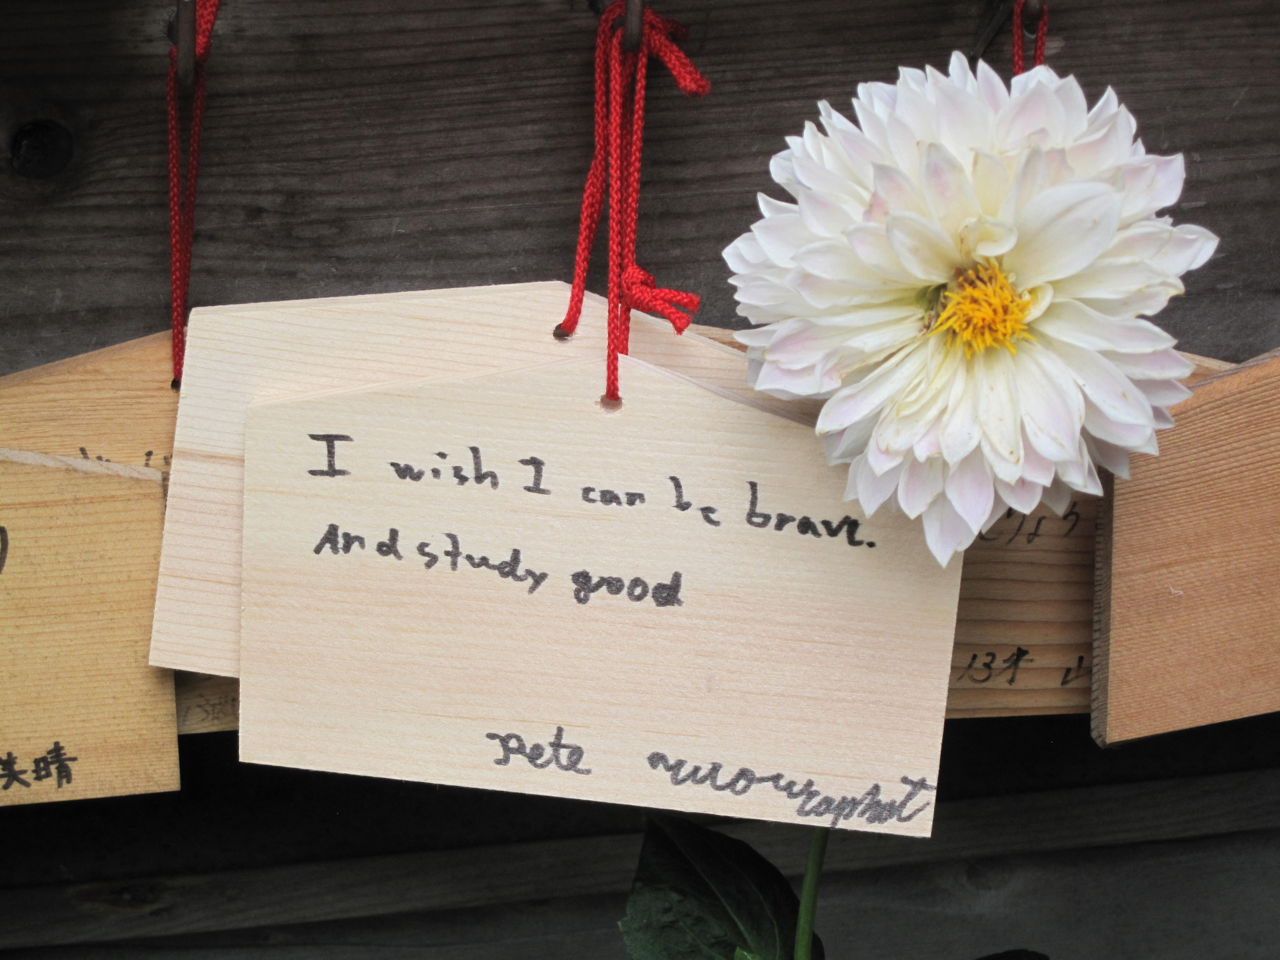 I wish I can be brave.
And study good
Pete
笑晴
13才 山